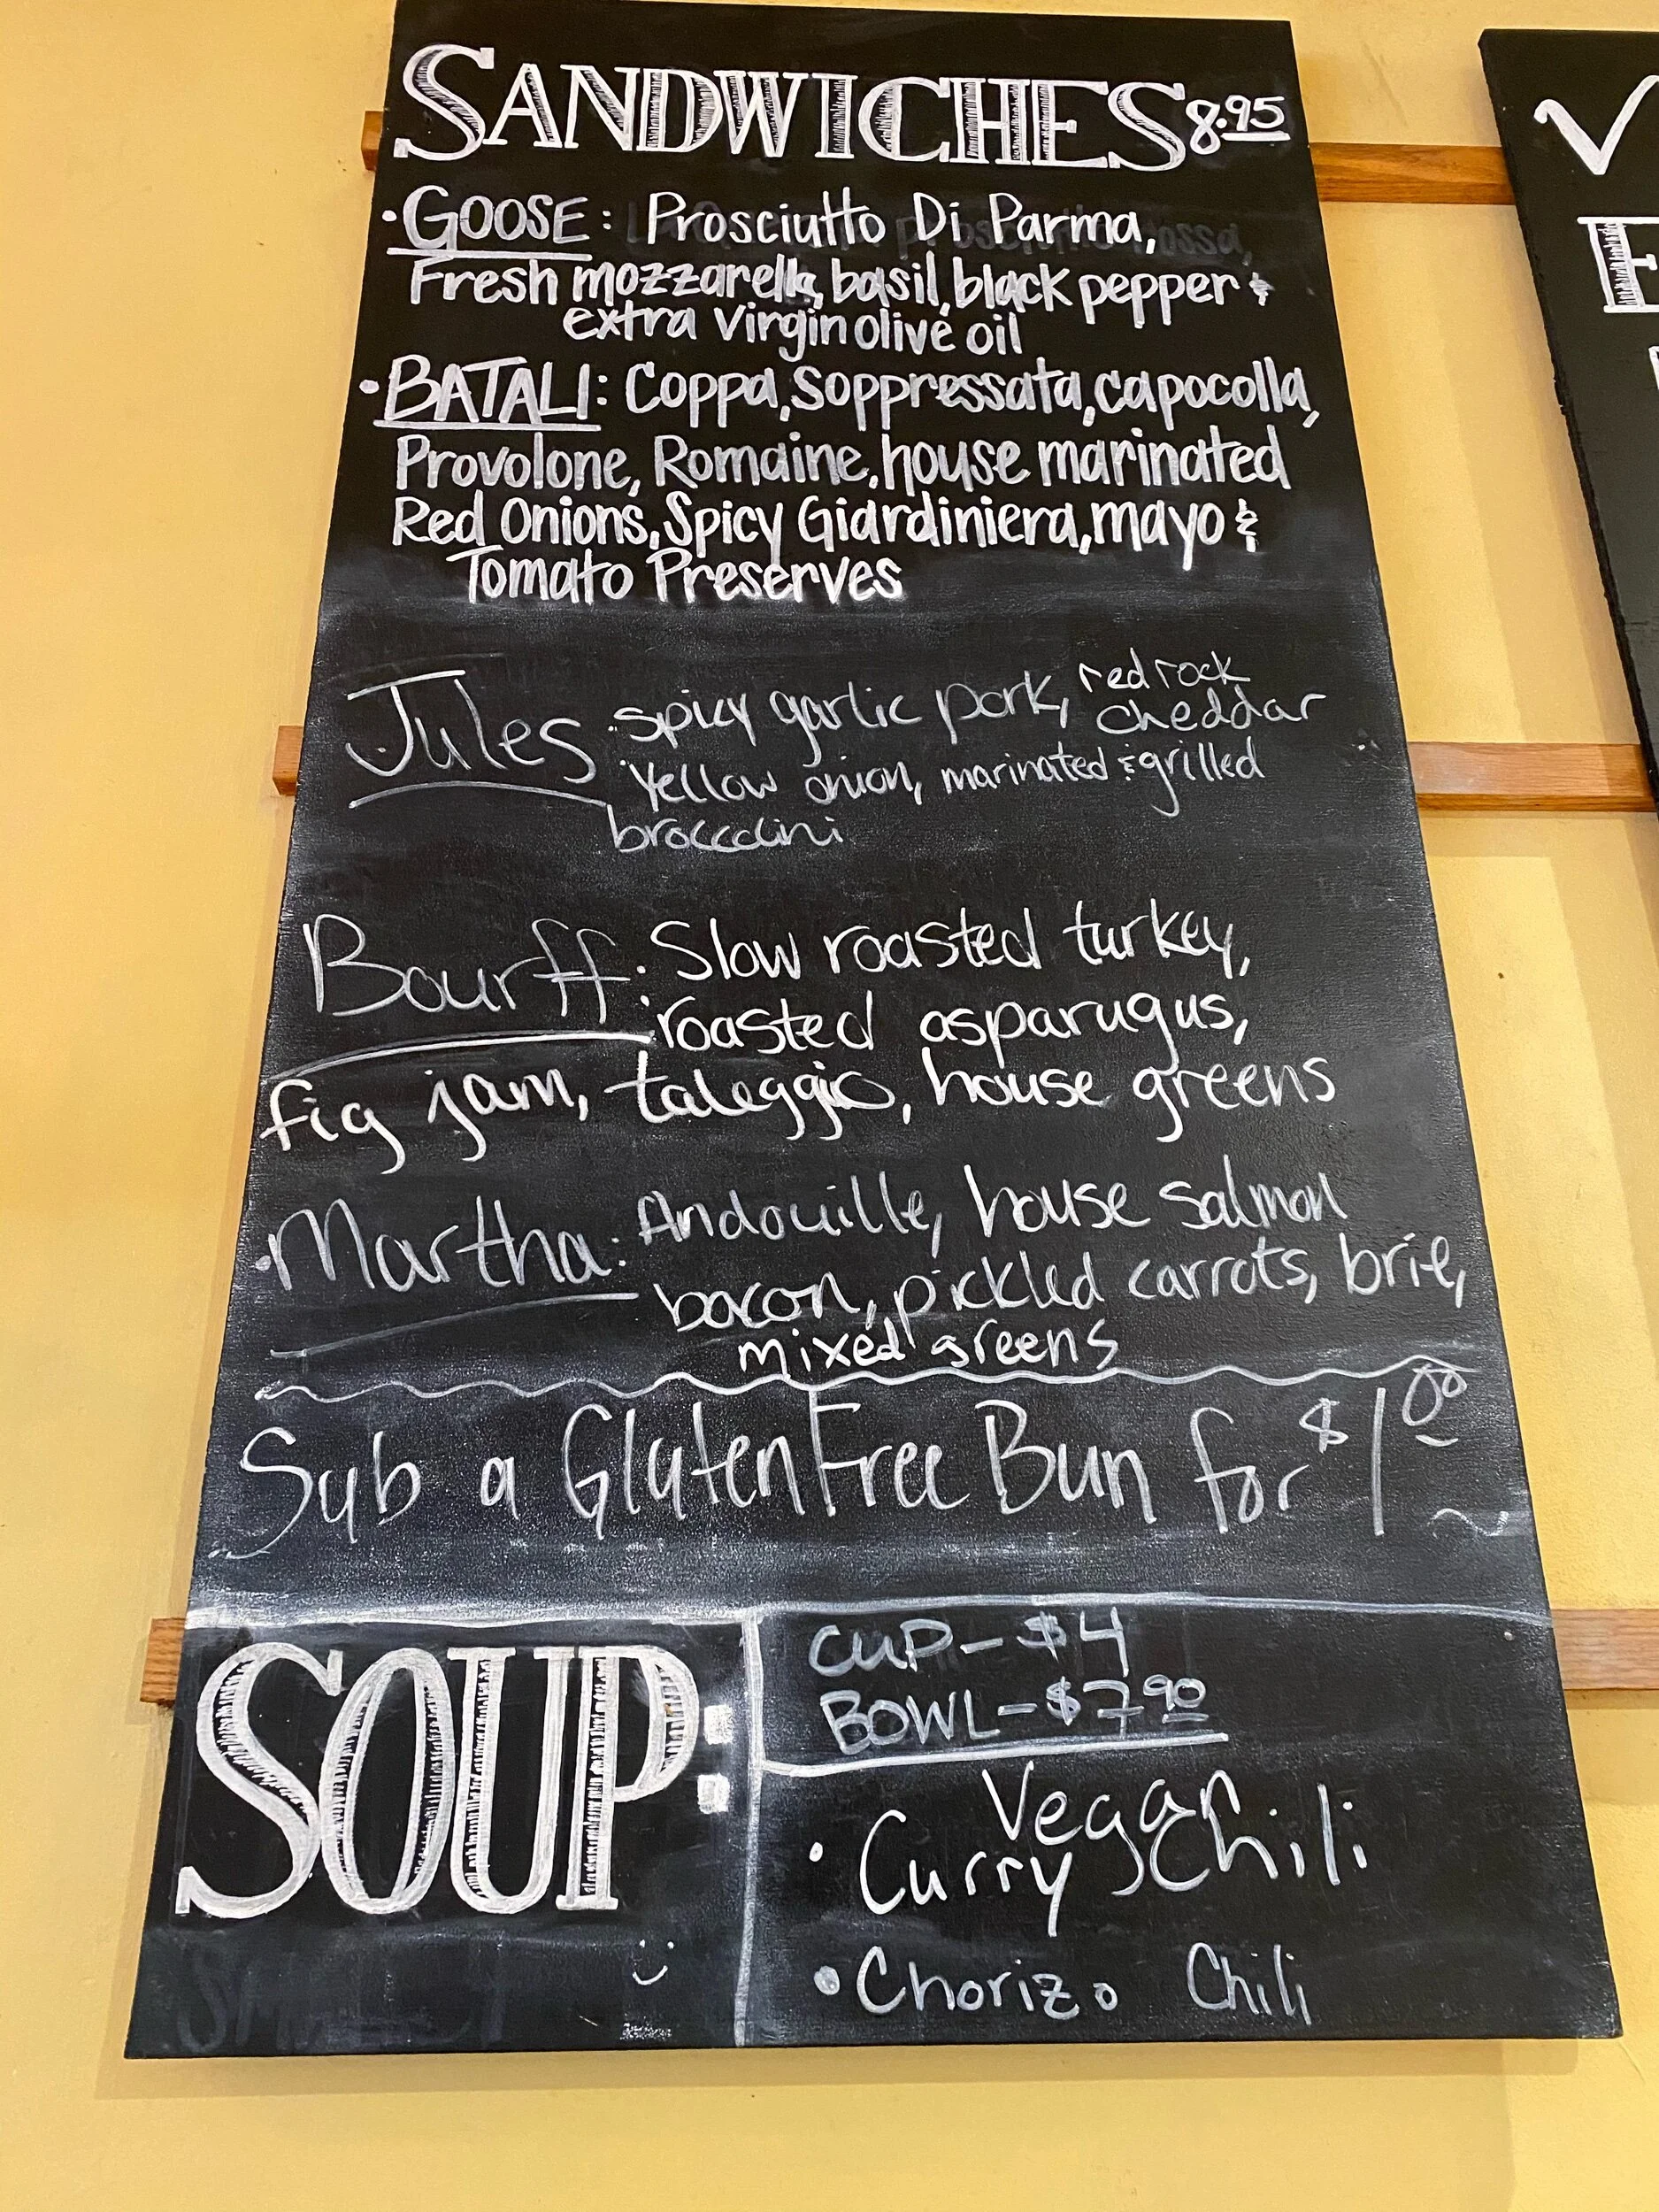 SANDWICHES 8.95
• GOOSE: Prosciutto Di Parma,
Fresh mozzarella, basil, black pepper &
extra virgin olive oil
• BATALI: Coppa, Soppressata, capocolla,
Provolone, Romaine, house marinated
Red Onions, Spicy Giardiniera, mayo &
Tomato Preserves
Jules: spicy garlic pork, red rock
cheddar
yellow onion, marinated & grilled
broccolini
Bourff: Slow roasted turkey,
roasted asparugus,
fig jam, taleggio, house greens
• Martha: Andouille, house salmon
bacon, pickled carrots, brie,
mixed greens
Sub a Gluten Free Bun for $1.00
SOUP:
CUP - $4
BOWL - $7.90
Vegan
• Curry Chili
• Chorizo Chili